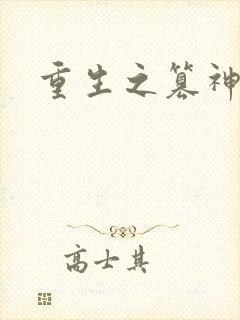 重生之篡神
高士其